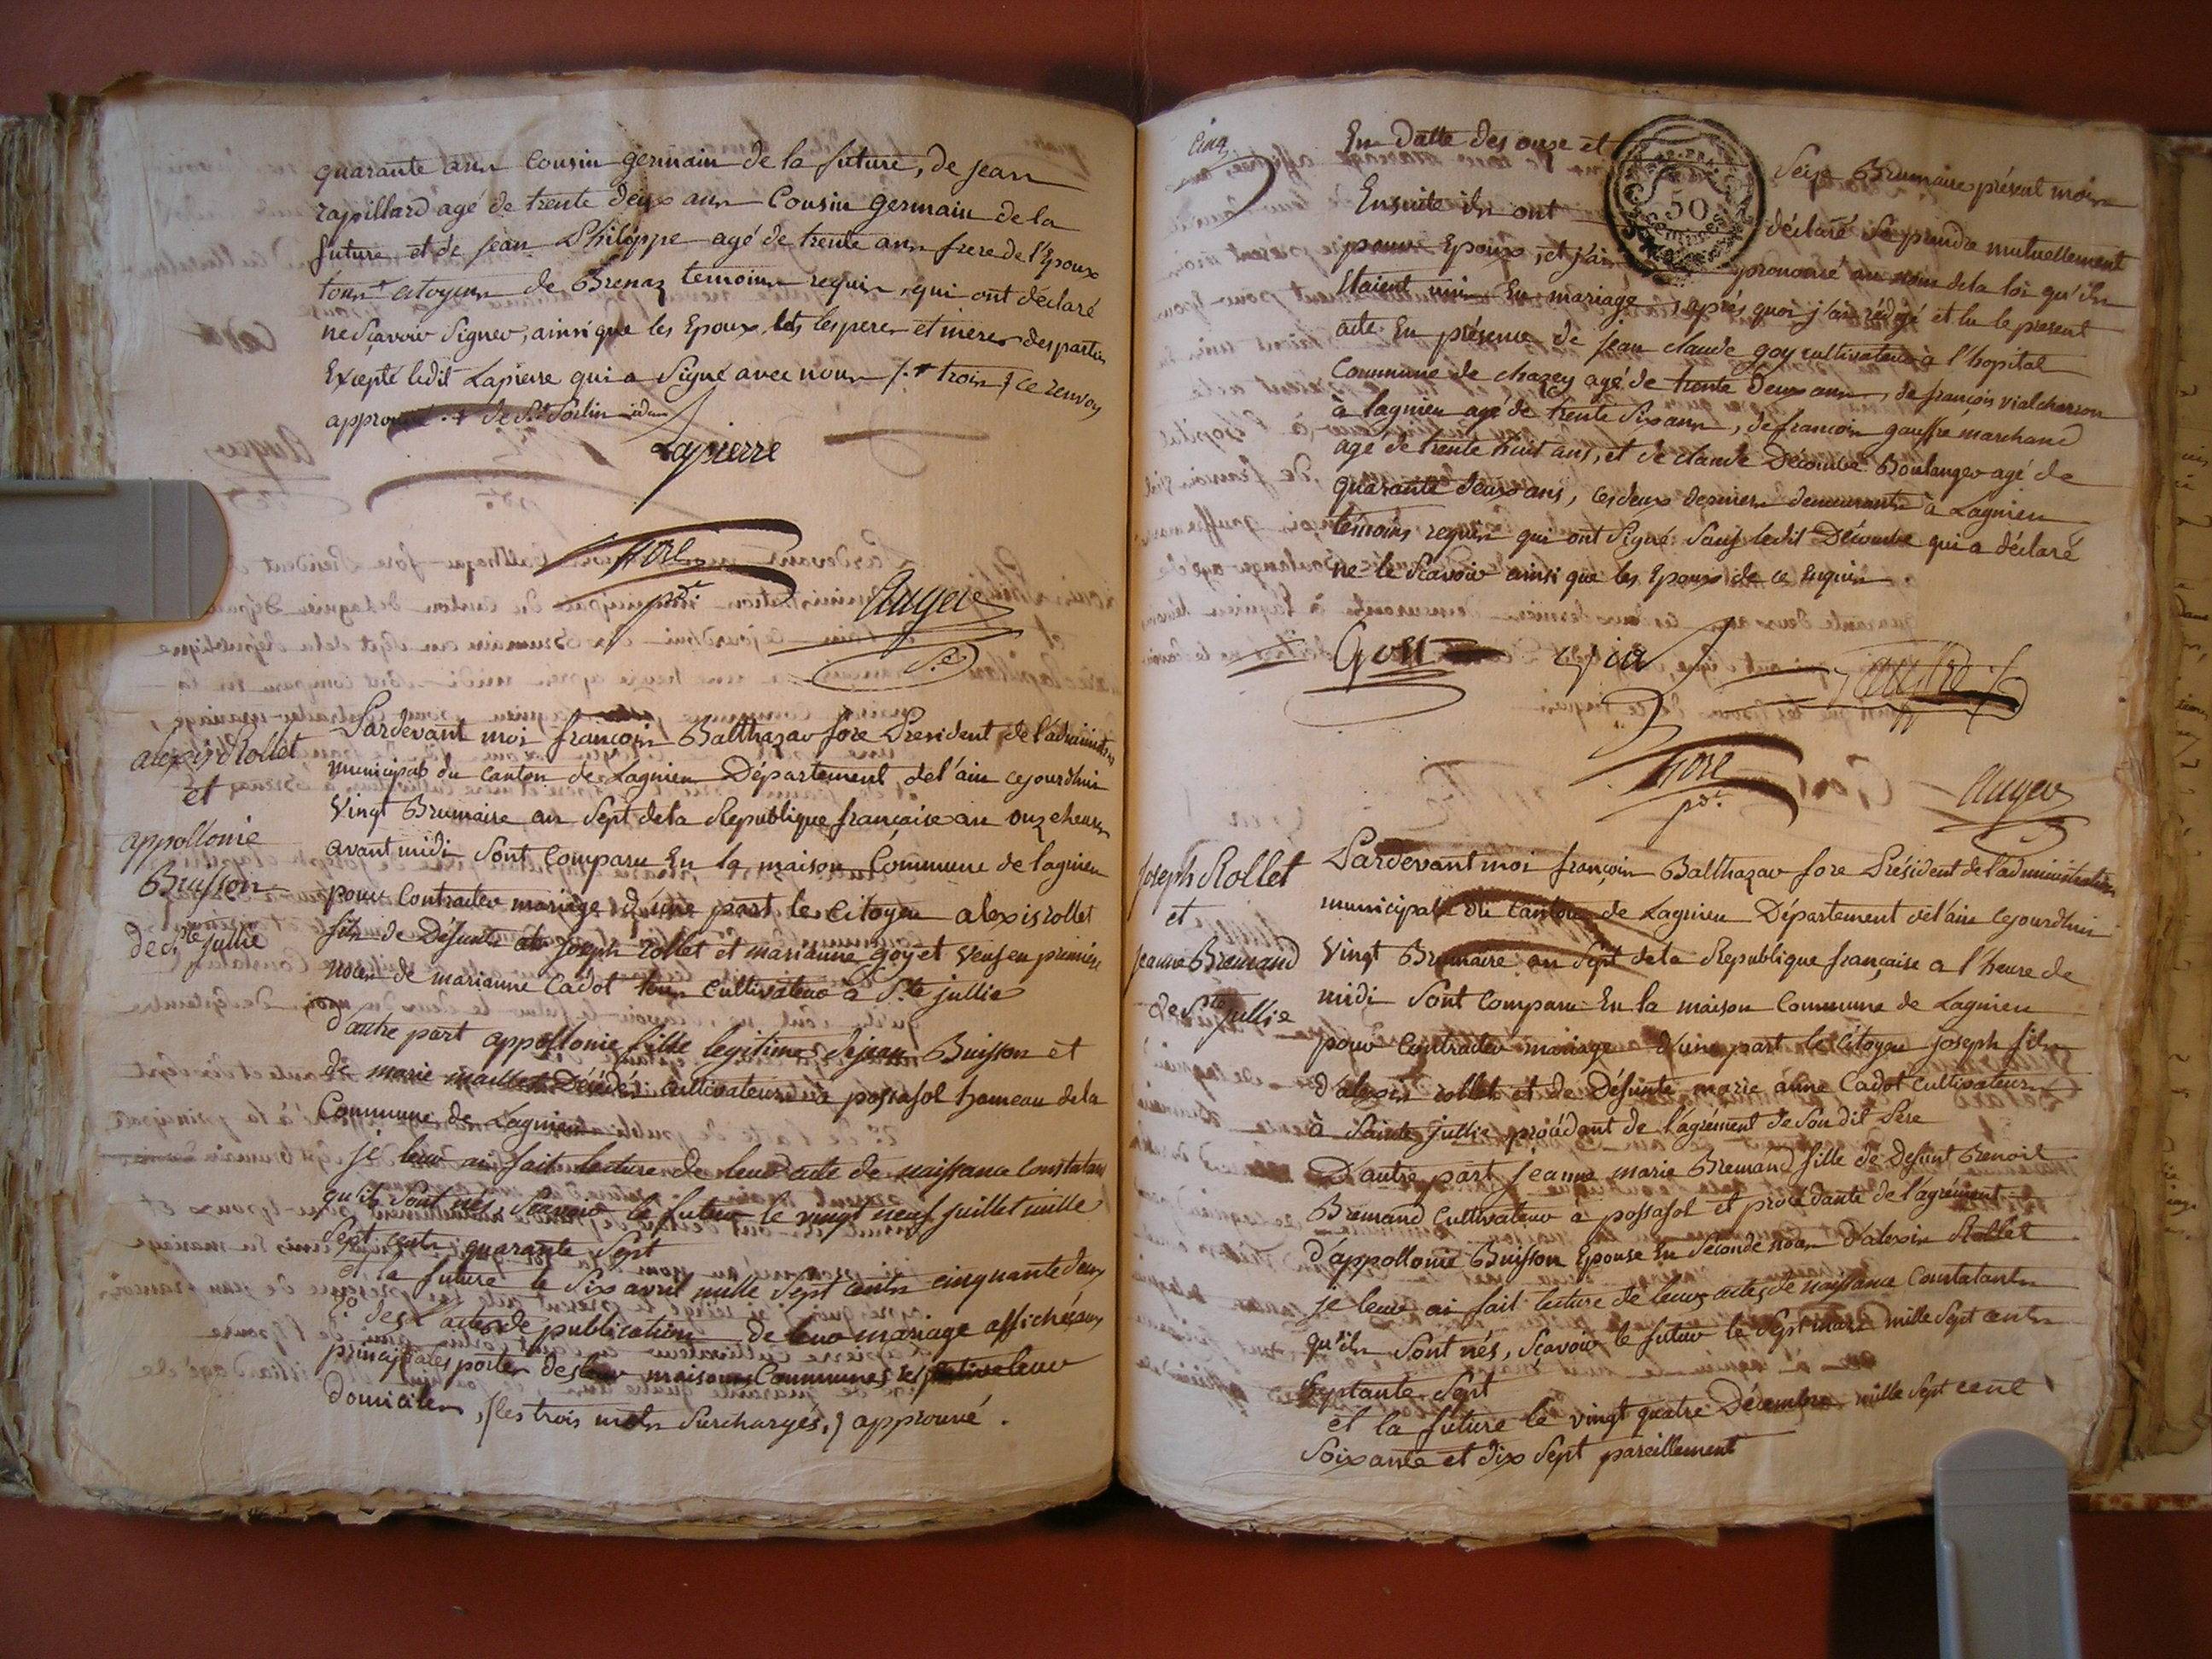 quarante ans Cousin germain de la future, de jean
rapillard agé de trente deux ans Cousin germain de la
future et de jean Philippe agé de trente ans frere de l'Epoux
tous citoyens de Brenaz temoins requis, qui ont déclaré
ne Sçavoir Signer, ainsi que les Epoux, les peres et meres des parties
Excepté ledit Lapierre qui a Signé avec nous trois ce renvoy
approuvé de St Sorlin
Lapierre
fore
pdt.
Auger
Sre
alexis Rollet
et
appollonie
Buisson
de Ste jullie
Pardevant moi françois Balthazar fore President de l'administon
municipale du canton de Lagnieu Département de l'ain cejourdhui
Vingt Brumaire an Sept de la Republique française au onze heures
avant midi Sont Comparu En la maison Commune de lagnieu
pour Contracter mariage d'une part le Citoyen alexis rollet
fils de Défunts joseph rollet et marianne goyet Veuf en première
noces de marianne Cadot tous Cultivateurs à Ste jullie
d'autre part appollonie fille legitime de jean Buisson et
de marie maillet Décédés cultivateurs à possafol hameau de la
Commune de Lagnieu
je leur ai fait lecture de leur acte de naissance Constatans
qu'ils Sont nés, Sçavoir le futur le vingt neuf juillet mille
Sept cents quarante Sept
et la future le Six avril mille Sept cents cinquante deux
2o des actes de publication de leur mariage affichés aux
principales portes des maisons Communes leur
domiciles, (les trois mots Surchargés,) approuvé.
Cinq
En Datte des onze et Seize Brumaire présent mois
50
Centimes
Ensuite ils ont déclaré Se prendre mutuellement
pour Epoux, et j'ai prononcé au nom de la loi qu'ils
étaient unis En mariage, aprés quoi j'ai rédigé et lu le présent
acte En présence de jean claude goy cultivateur à l'hopital
Commune de chazey agé de trente Deux ans, de françois vial charron
à lagnieu agé de trente Six ans, de françois gauffre marchand
agé de trente huit ans, et de claude Décombe Boulanger agé de
quarante deux ans, ces deux derniers demeurants à Lagnieu
témoins requis qui ont Signé Sauf ledit Décombe qui a déclaré
ne le Sçavoir ainsi que les Epoux de ce Enquis
fore
pdt.
Auger
joseph Rollet
et
jeanne Bremand
de Ste jullie
Pardevant moi françois Balthazar fore Président de l'administration
municipale du canton de Lagnieu Département de l'ain cejourdhui
Vingt Brumaire an Sept de la Republique française a l'heure de
midi Sont Comparu En la maison Commune de Lagnieu
pour Contracter mariage d'une part le Citoyen joseph fils
d'alexis rollet et de Défunte marie anne Cadot Cultivateurs
à Sainte jullie procédant de l'agrément de Son dit Pere
D'autre part jeanne marie Bremand fille de Defunt Benoit
Bremand Cultivateur à possafol et procédante de l'agrément
d'appollonie Buisson Epouse En Seconde noces D'alexis Rollet
je leur ai fait lecture de leurs actes de naissance Constatants
qu'ils Sont nés, Sçavoir le futur le Sept mars mille Sept cents
Septante Sept
et la future le vingt quatre Décembre mille Sept cent
Soixante et dix Sept pareillement